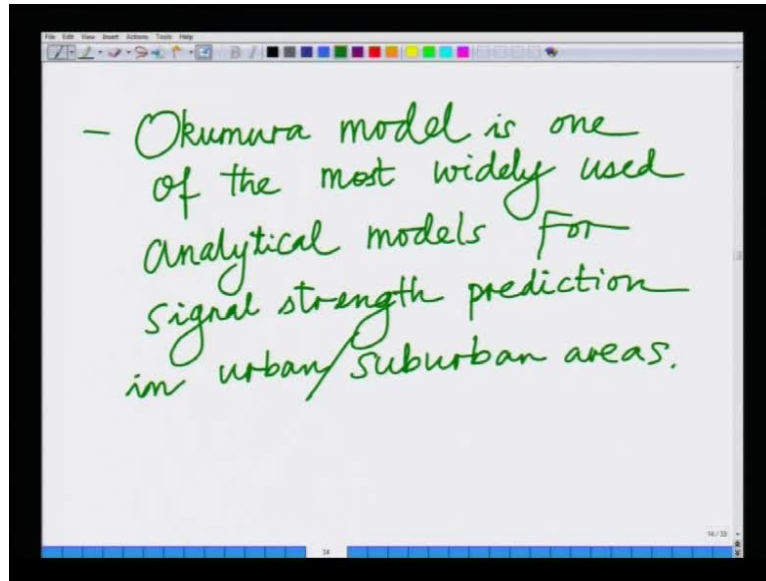 File Edit View Insert Actions Tools Help
- Okumura model is one
of the most widely used
analytical models for
signal strength prediction
in urban/suburban areas.
14 / 33
14